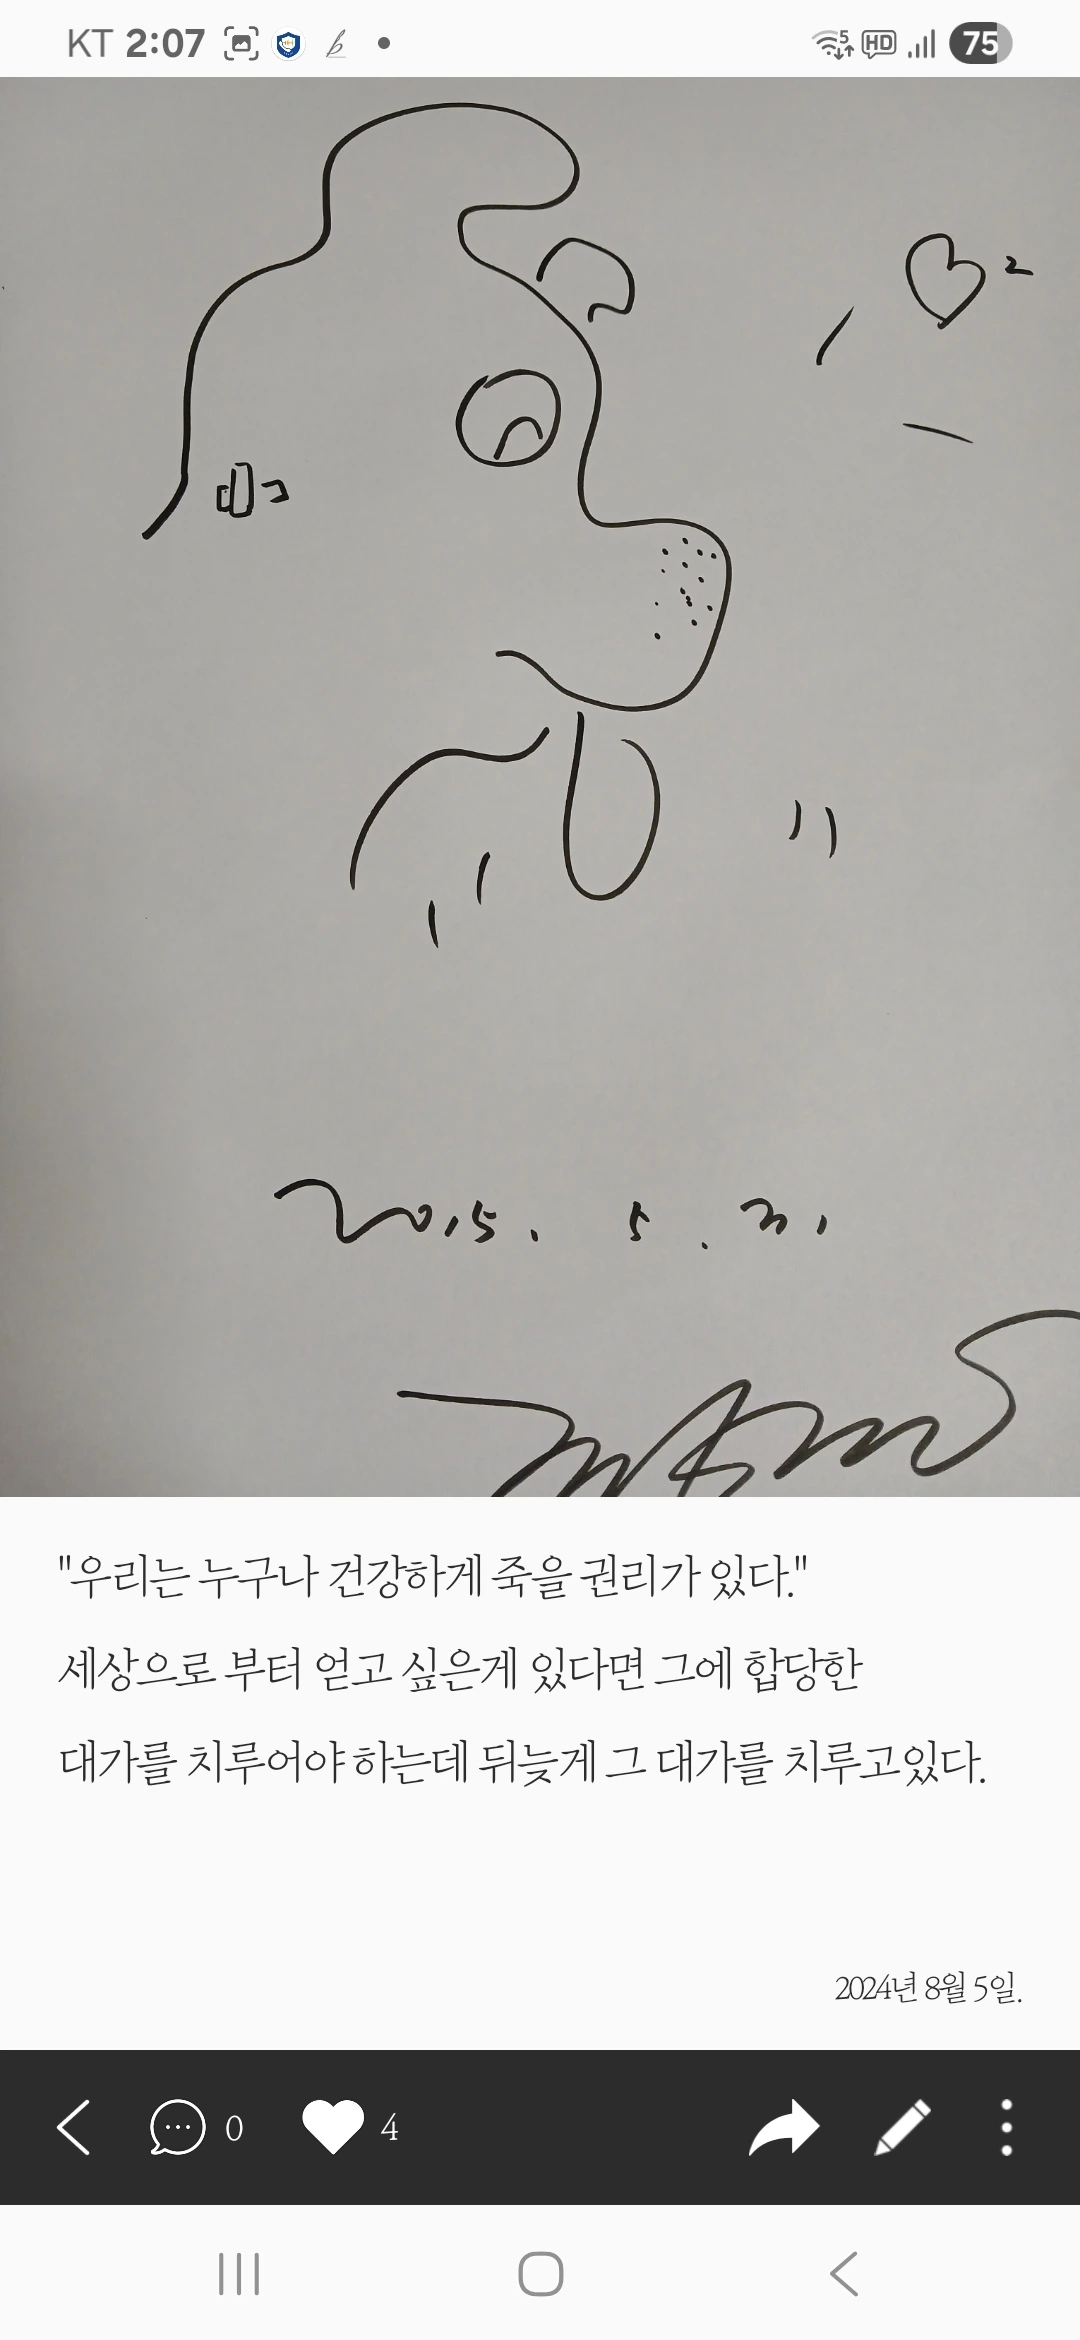 KT 2:07
5 HD 75
2
2015. 5. 31
"우리는 누구나 건강하게 죽을 권리가 있다."
세상으로 부터 얻고 싶은게 있다면 그에 합당한
대가를 치루어야 하는데 뒤늦게 그 대가를 치루고있다.
2024년 8월 5일.
0 4